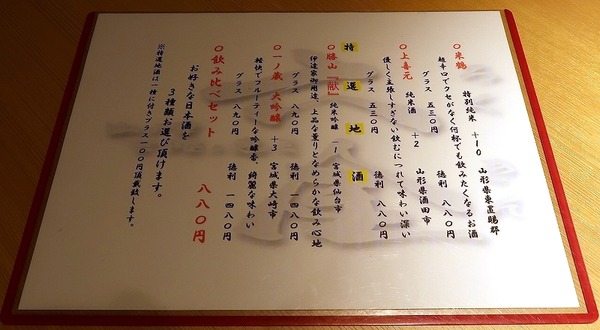 ○米鶴
特別純米 +10 山形県東置賜郡
超辛口でクセがなく何杯でも飲みたくなるお酒
グラス 五三〇円 徳利 八八〇円
○上喜元
純米酒 +2 山形県酒田市
優しく主張しすぎない飲むにつれて味わい深い
グラス 五三〇円 徳利 八八〇円
特選地酒
○勝山『献』 純米吟醸 -1 宮城県仙台市
伊達家御用達、上品な薫りとなめらかな飲み心地
グラス 八九〇円 徳利 一四八〇円
○一ノ蔵 大吟醸 +3 宮城県大崎市
軽快でフルーティーな吟醸香、綺麗な味わい
グラス 八九〇円 徳利 一四八〇円
○飲み比べセット 八八〇円
お好きな日本酒を
3種類お選び頂けます。
※特選地酒は一種に付きプラス一〇〇円頂戴致します。